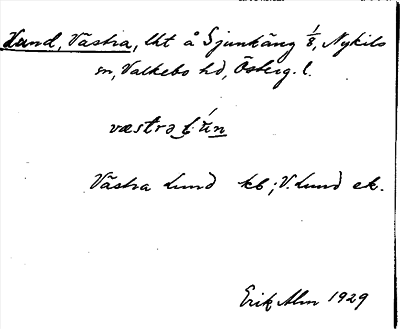 Lund, Västra, lht å Sjunkäng 1/8, Nykils
sn, Valkebo hd, Österg. l.
væstra lún
Västra Lund kb; V. Lund ek.
Erik Alm 1929